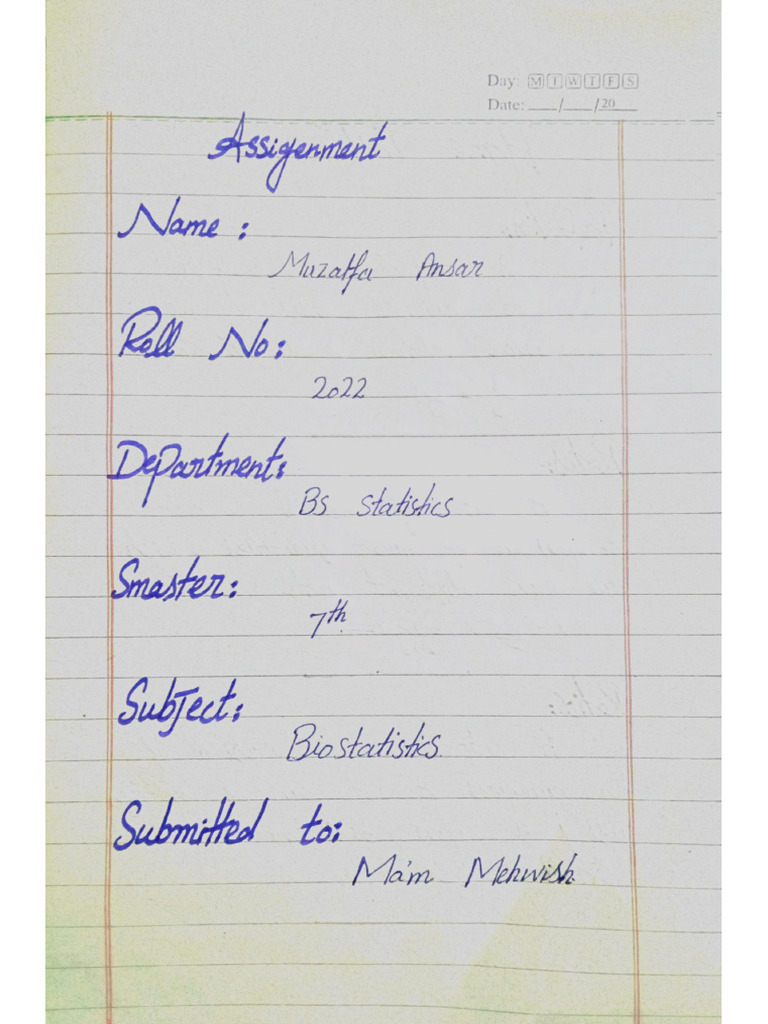 Day: M T W T F S
Date: ___/___/20___
Assigenment
Name :
Muzalfa Ansar
Roll No:
2022
Department:
Bs Statistics
Smaster:
7th
Subject:
Biostatistics
Submitted to:
Ma'm Mehwish